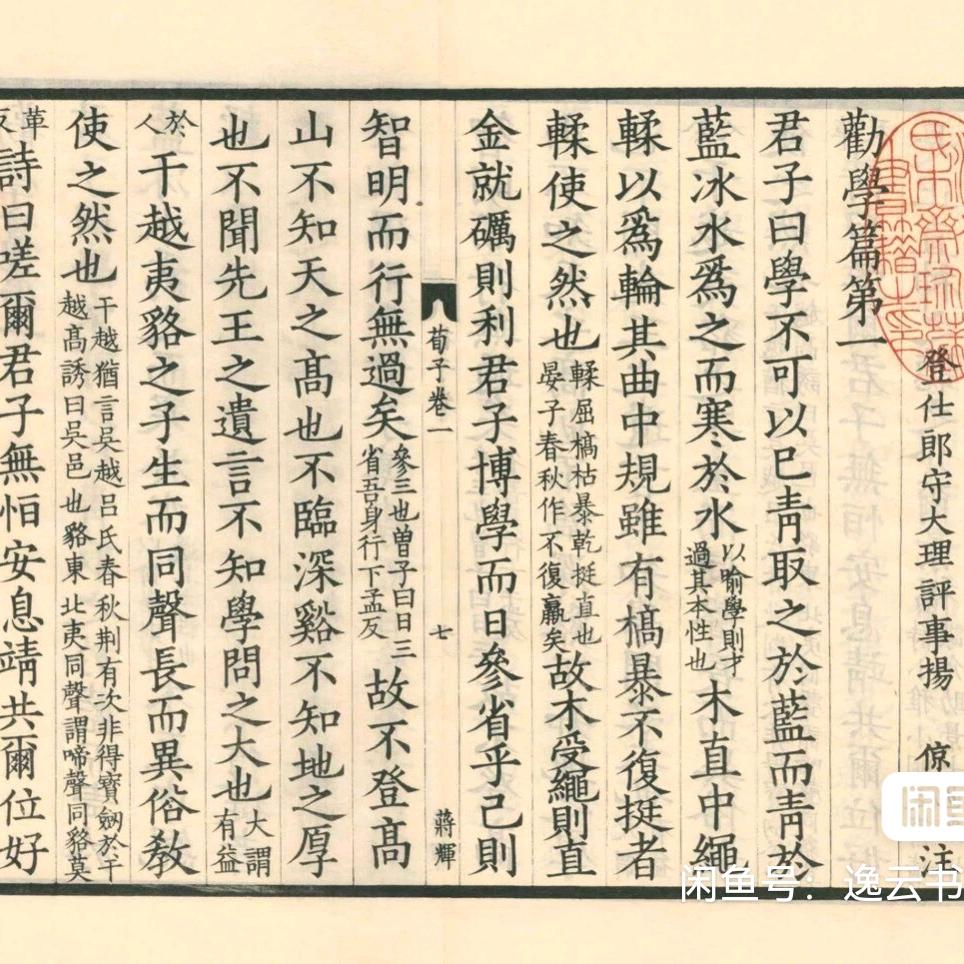 登仕郎守大理評事揚 倞 注
勸學篇第一
君子曰學不可以巳青取之於藍而青於
藍冰水爲之而寒於水以喻學則才過其本性也木直中繩
輮以爲輪其曲中規雖有槁暴不復挺者
輮使之然也輮屈槁枯暴乾挺直也晏子春秋作不復羸矣故木受繩則直
金就礪則利君子博學而日參省乎己則
智明而行無過矣參三也曾子曰日三省吾身行下孟反故不登髙
荀子卷一 七 蔣輝
山不知天之髙也不臨深谿不知地之厚
也不聞先王之遺言不知學問之大也大謂有益
於人干越夷貉之子生而同聲長而異俗教
使之然也干越猶言吳越呂氏春秋荆有次非得寶劒於干越髙誘曰吳邑也貉東北夷同聲謂啼聲同貉莫
革反詩曰嗟爾君子無恒安息靖共爾位好
闲鱼号：逸云书